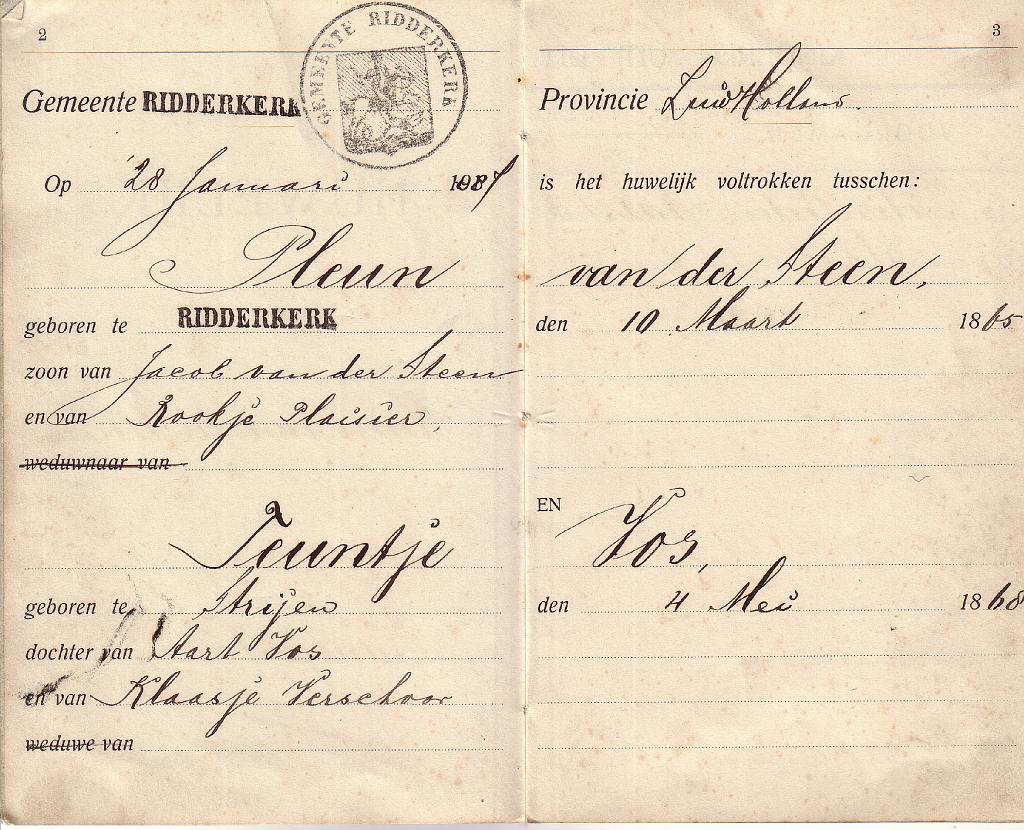 2
GEMEENTE RIDDERKERK
Gemeente RIDDERKERK
Op 28 Januari 1887
Pleun
geboren te RIDDERKERK
zoon van Jacob van der Steen
en van Rookje Plaisier,
weduwnaar van
Teuntje
geboren te Strijen
dochter van Aart Vos
en van Klaasje Verschoor
weduwe van
3
Provincie Zuid Holland.
is het huwelijk voltrokken tusschen:
van der Steen,
den 10 Maart 1865
EN
Vos,
den 4 Mei 1868